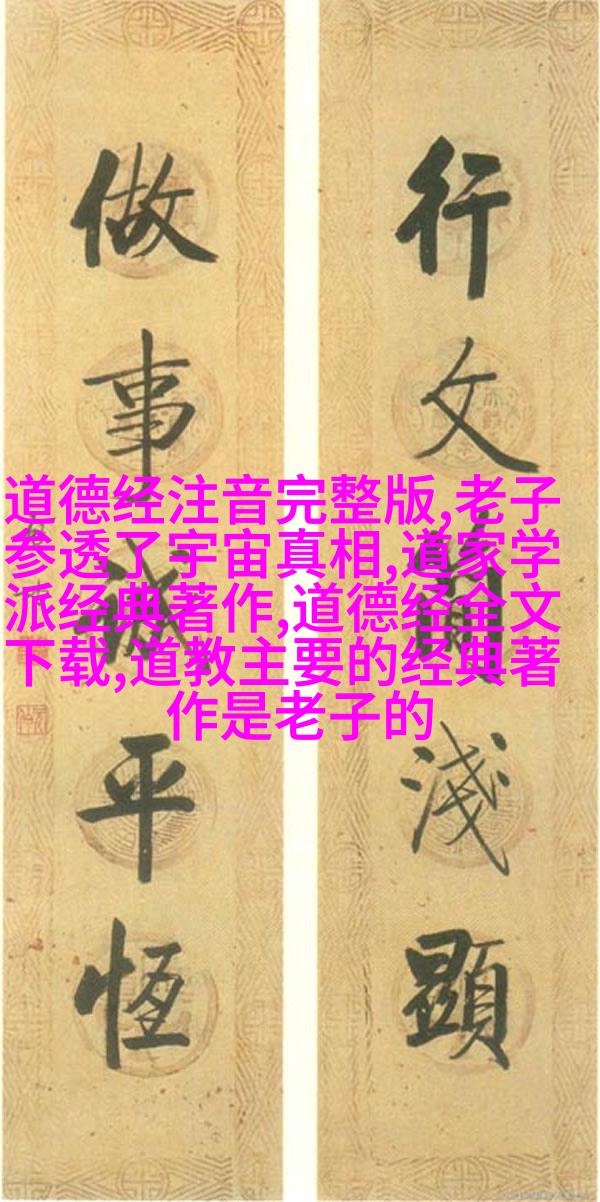 行文淺顯
做事誠平恆
道德经注音完整版,老子
参透了宇宙真相,道家学
派经典著作,道德经全文
下载,道教主要的经典著
作是老子的